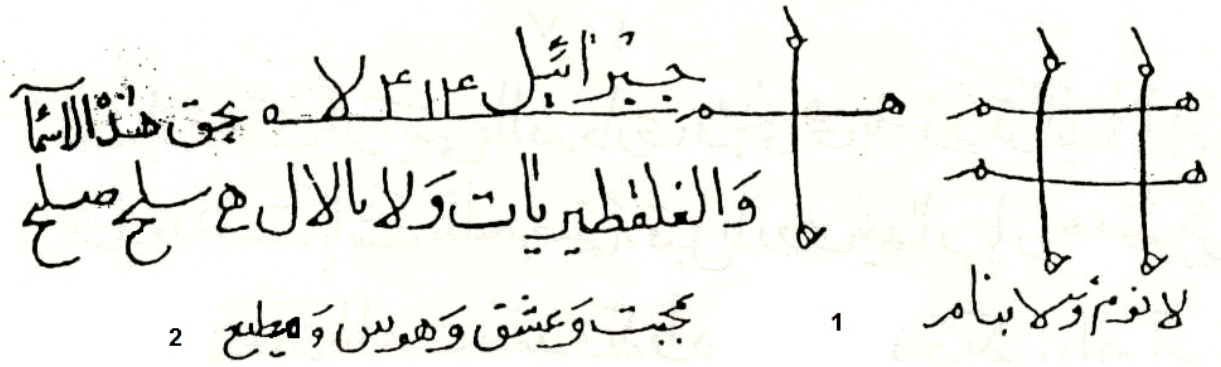 جبرائيل ۴۱۴ لا بحق هذه الاسماء
والغلقطيريات ولا بالال هج سلح صلح
لا نوم ولا بنام
1
محبت وعشق وهوس ومطيع
2